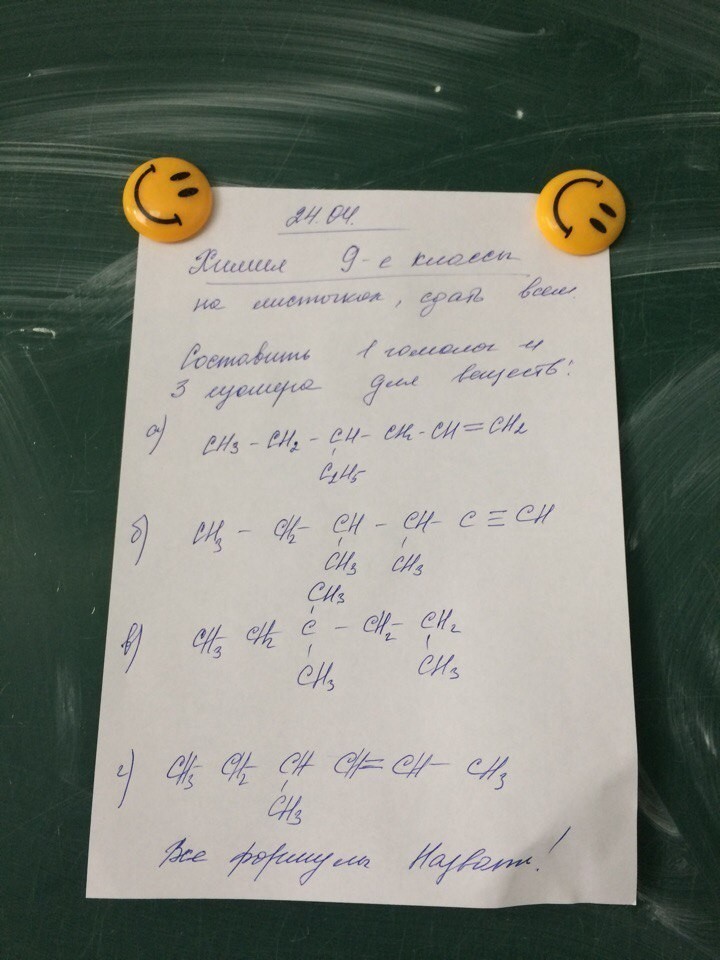 24.04.
Химия 9-е классы
на листочках, сдать всем.
Составить 1 гомолог и
3 изомера для веществ:
а) CH3 - CH2 - CH - CH2 - CH = CH2
C2H5
б) CH3 - CH2 - CH - CH - C ≡ CH
CH3 CH3
CH3
в) CH3 - CH2 - C - CH2 - CH2
CH3 CH3
г) CH3 - CH2 - CH - CH = CH - CH3
CH3
Все формулы назвать!